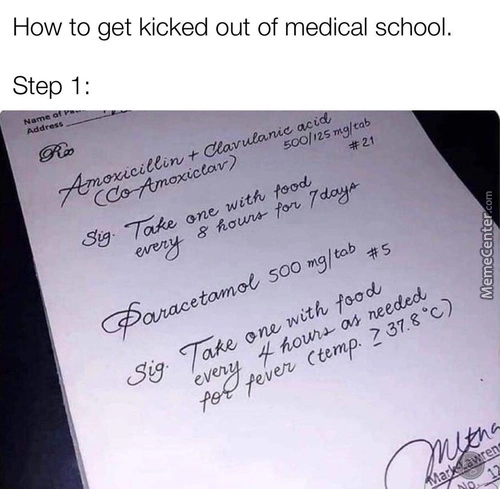 How to get kicked out of medical school.
Step 1:
Name of
Address
Rx
Amoxicillin + Clavulanic acid
(Co-Amoxiclav) 500/125 mg/tab
#21
Sig. Take one with food
every 8 hours for 7 days
Paracetamol 500 mg/tab #5
Sig. Take one with food
every 4 hours as needed
for fever (temp. ≥ 37.8°C)
Mark Lawren
No. 12
MemeCenter.com